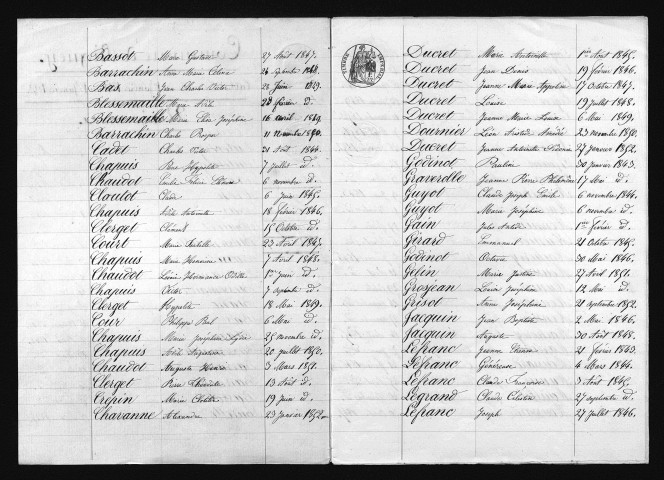 Bassot Marie Gustave 27 Août 1847.
Barrachin Anne Marie Celina 26 septembre 1848.
Bas Jean Charles Victor 23 Juin 1849.
Blessemaille Marie Adèle 28 février d.
Blessemaille Marie Joséphine 16 avril 1849.
Barrachin Charles 11 novembre 1850.
Cadet Charles Victor 21 Août 1844.
Chapuis Hippolyte 7 juillet d.
Chaudot Emile 6 novembre d.
Cloutot 6 juin 1845.
Chapuis Adèle Antoinette 18 février 1846.
Clerget Clément 15 Octobre d.
Court Marie 23 Avril 1847.
Chapuis Marie 7 Avril 1848.
Chaudot Odille 1er juin d.
Chapuis Victor 7 septembre d.
Clerget Hypolite 18 Mai 1849.
Cour Philippe 6 Mai d.
Chapuis Marie Joséphine Lydie 25 novembre d.
Chapuis Adèle 20 juillet 1850.
Chaudot Auguste Henri 3 Mars 1851.
Clerget Pierre 13 Août d.
Crepin Marie Clotilde 19 juin d.
Chavanne Alexandre 23 janvier 1852
TIMBRE IMPERIAL
Ducret Marie Antoinette 1er Août 1845.
Ducret Jean Denis 19 février 1846.
Ducret Jeanne Marie 17 Octobre 1847.
Ducret Louise 19 juillet 1848.
Ducret Jeanne Marie Louise 6 Mai 1849.
Dournier Léon Aristide Amédée 23 novembre 1850.
Ducret Jeanne Antoinette 27 janvier 1852.
Godinot Pauline 30 janvier 1843.
Graverolle Jeanne Pierre 17 Mai d.
Guyot Claude Joseph Emile 6 novembre 1844.
Guyot Marie Joséphine 6 novembre d.
Gain Jules 1er février d.
Gérard Emmanuel 21 Octobre 1845.
Godinot Octavie 30 Mai 1846.
Gelin Marie Justine 27 Avril 1851.
Grosjean Louise Joséphine 12 Mai d.
Grisot Anne Joséphine 21 septembre 1852.
Jacquin Jean Baptiste 2 Mai 1846.
Jacquin Auguste 30 Août 1848.
Lefranc Jeanne 21 février 1843.
Lefranc Généreuse 4 Mars 1844.
Lefranc Claude Françoise 3 Août 1845.
Legrand Claude Célestin 27 septembre d.
Lefranc Joseph 27 juillet 1846.